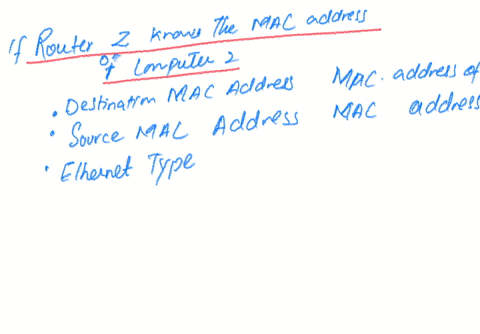 If Router 2 knows the MAC address
of Computer 2
• Destination MAC Address MAC. address of
• Source MAC Address MAC address
• Ethernet Type